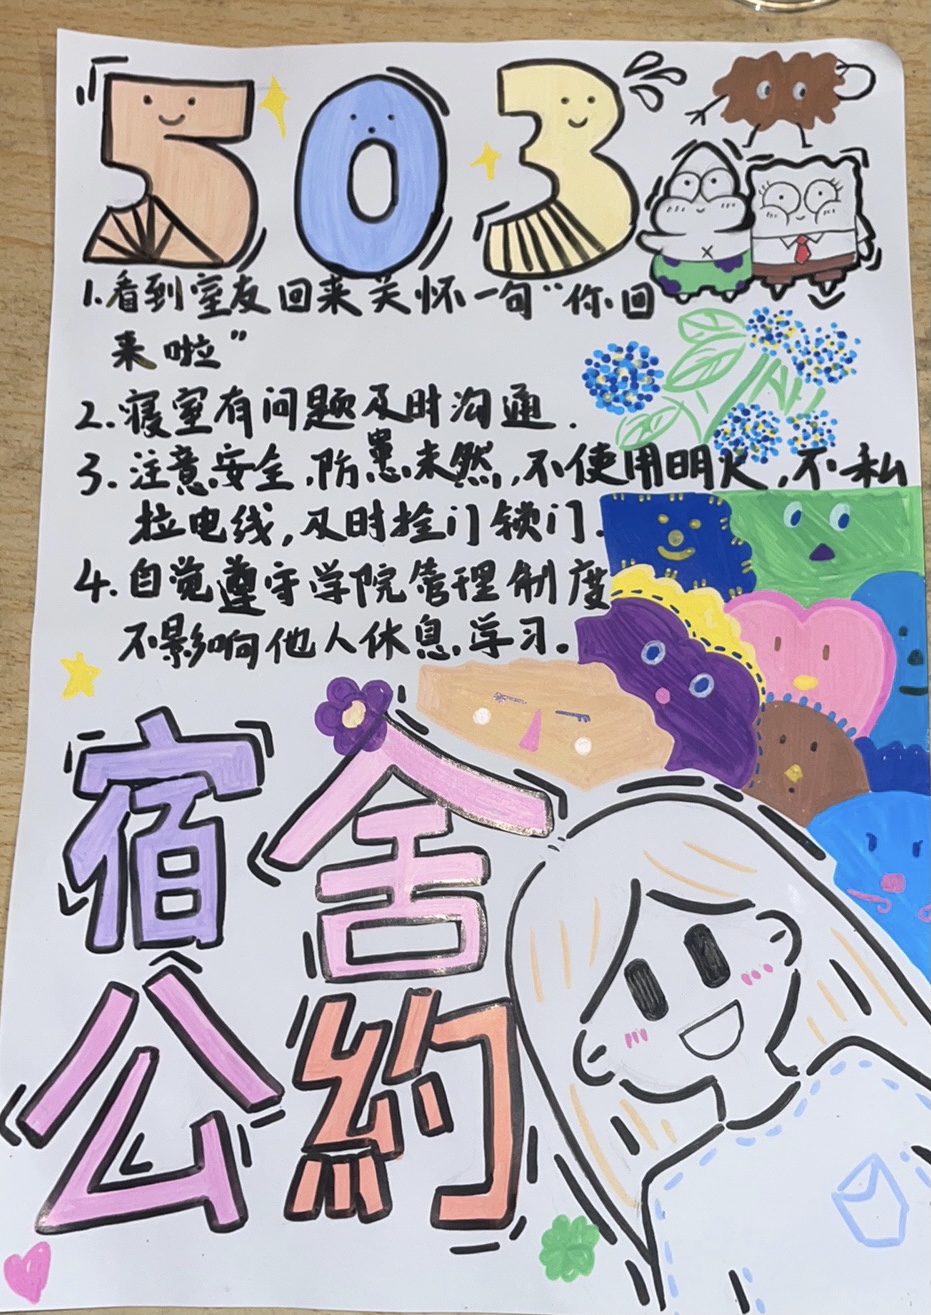 503
1.看到室友回来关怀一句“你回
来啦”
2.寝室有问题及时沟通.
3.注意安全,防患未然,不使用明火,不私
拉电线,及时拴门锁门.
4.自觉遵守学院管理制度
不影响他人休息,学习。
宿舍
公約